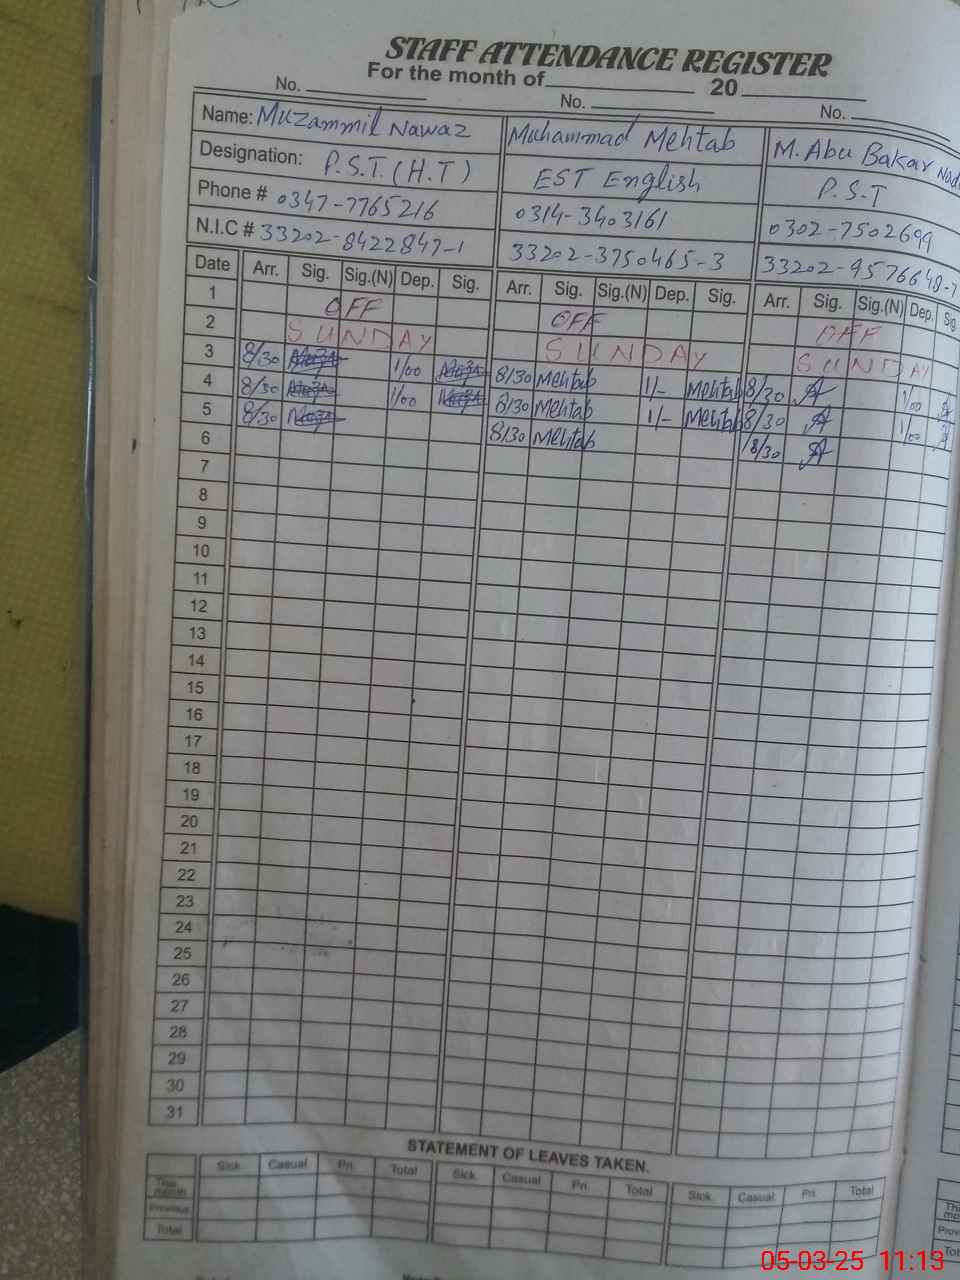 STAFF ATTENDANCE REGISTER
For the month of 20
No. No. No.
Name: Muzammil Nawaz Muhammad Mehtab M. Abu Bakar
Designation: P.S.T. (H.T) EST English P.S.T
Phone # 0347-7765216 0314-3403161 0302-7502699
N.I.C # 33202-8422847-1 33202-3750465-3 33202-9576648-7
Date Arr. Sig. Sig.(N) Dep. Sig. Arr. Sig. Sig.(N) Dep. Sig. Arr. Sig. Sig.(N) Dep. Sig.
1 OFF OFF OFF
2 SUNDAY SUNDAY SUNDAY
3 8/30 1/00 8/30 Mehtab 1/- Mehtab 8/30 1/00
4 8/30 1/00 8/30 Mehtab 1/- Mehtab 8/30 1/00
5 8/30 8/30 Mehtab 8/30
6
7
8
9
10
11
12
13
14
15
16
17
18
19
20
21
22
23
24
25
26
27
28
29
30
31
STATEMENT OF LEAVES TAKEN.
Sick. Casual Pri. Total Sick. Casual Pri. Total Sick. Casual Pri. Total
This month
Previous
Total
05-03-25 11:13